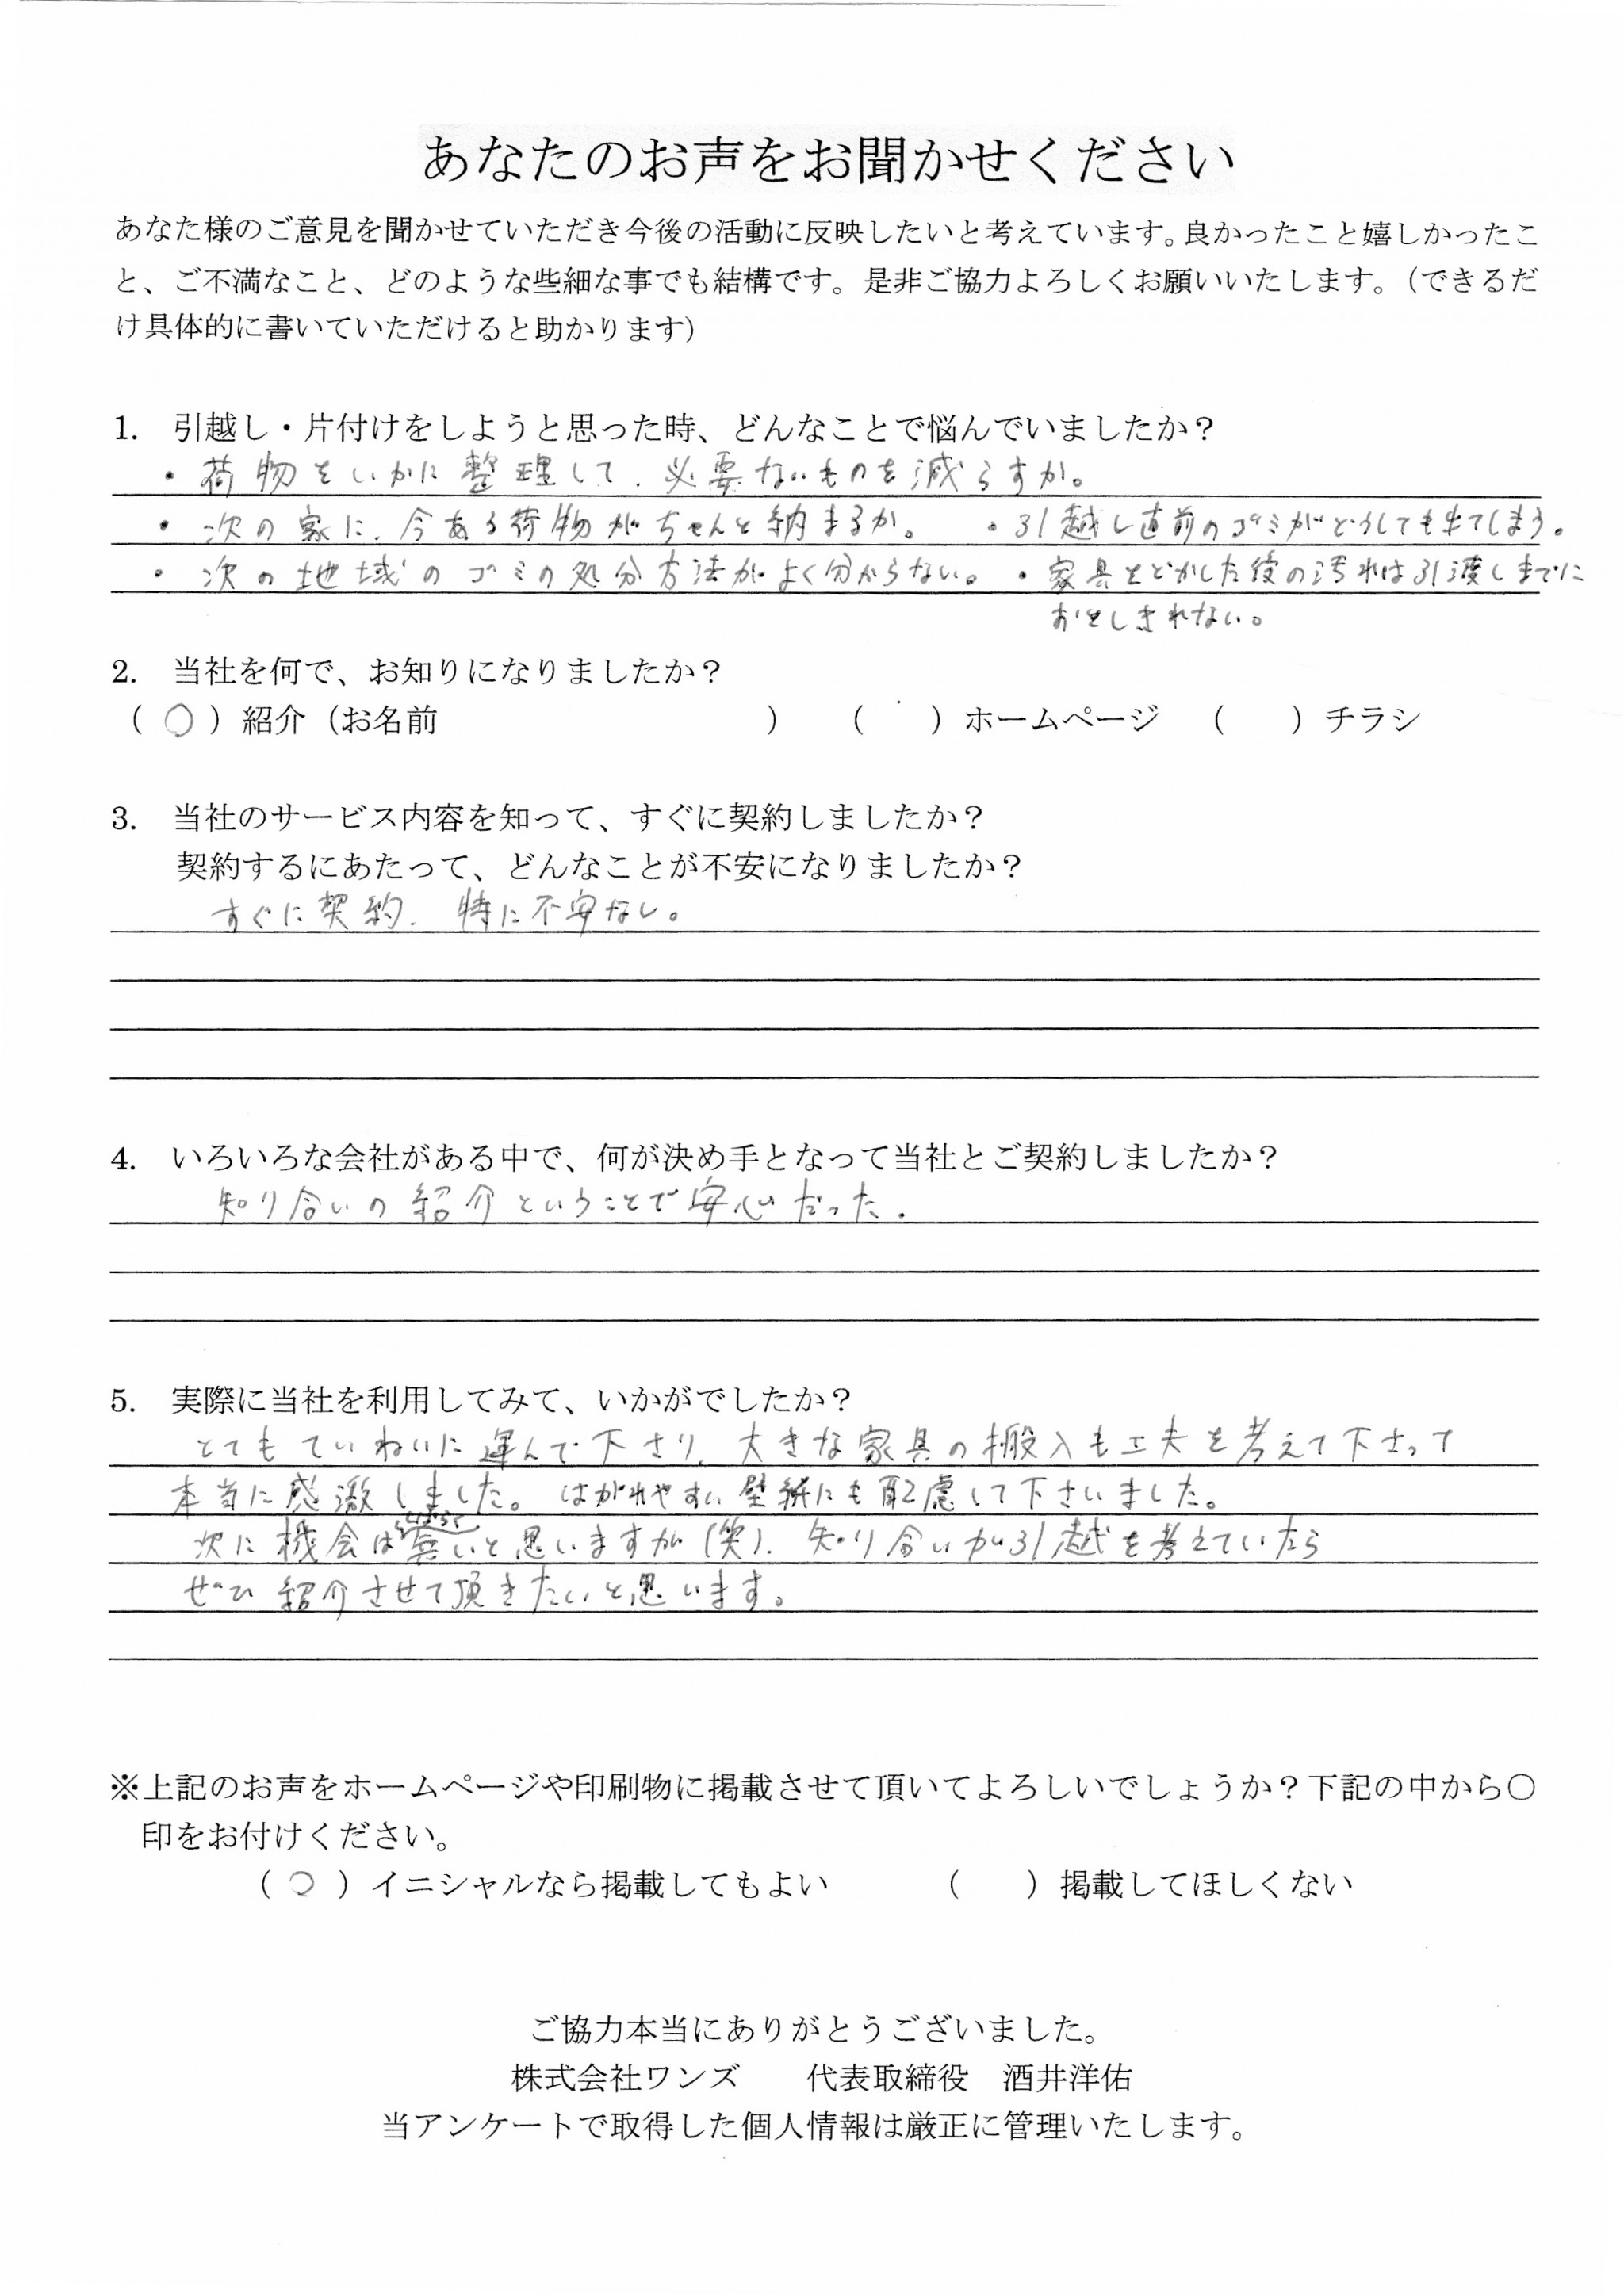 あなたのお声をお聞かせください
あなた様のご意見を聞かせていただき今後の活動に反映したいと考えています。良かったこと嬉しかったこ
と、ご不満なこと、どのような些細な事でも結構です。是非ご協力よろしくお願いいたします。（できるだ
け具体的に書いていただけると助かります）
1. 引越し・片付けをしようと思った時、どんなことで悩んでいましたか？
・荷物をいかに整理して、必要ないものを減らすか。
・次の家に、今ある荷物がちゃんと納まるか。 ・引越し直前のゴミがどうしても出てしまう。
・次の地域のゴミの処分方法がよく分からない。 ・家具をどかした後の汚れは引渡しまでに
おとしきれない。
2. 当社を何で、お知りになりましたか？
（ ○ ）紹介（お名前 ） （ ）ホームページ （ ）チラシ
3. 当社のサービス内容を知って、すぐに契約しましたか？
契約するにあたって、どんなことが不安になりましたか？
すぐに契約、特に不安なし。
4. いろいろな会社がある中で、何が決め手となって当社とご契約しましたか？
知り合いの紹介ということで安心だった。
5. 実際に当社を利用してみて、いかがでしたか？
とてもていねいに運んで下さり、大きな家具の搬入も工夫を考えて下さって
本当に感激しました。はがれやすい壁紙にも配慮して下さいました。
しばらく
次に機会は無いと思いますが（笑）、知り合いが引越を考えていたら
ぜひ紹介させて頂きたいと思います。
※上記のお声をホームページや印刷物に掲載させて頂いてよろしいでしょうか？下記の中から〇
印をお付けください。
（ ○ ）イニシャルなら掲載してもよい （ ）掲載してほしくない
ご協力本当にありがとうございました。
株式会社ワンズ 代表取締役 酒井洋佑
当アンケートで取得した個人情報は厳正に管理いたします。